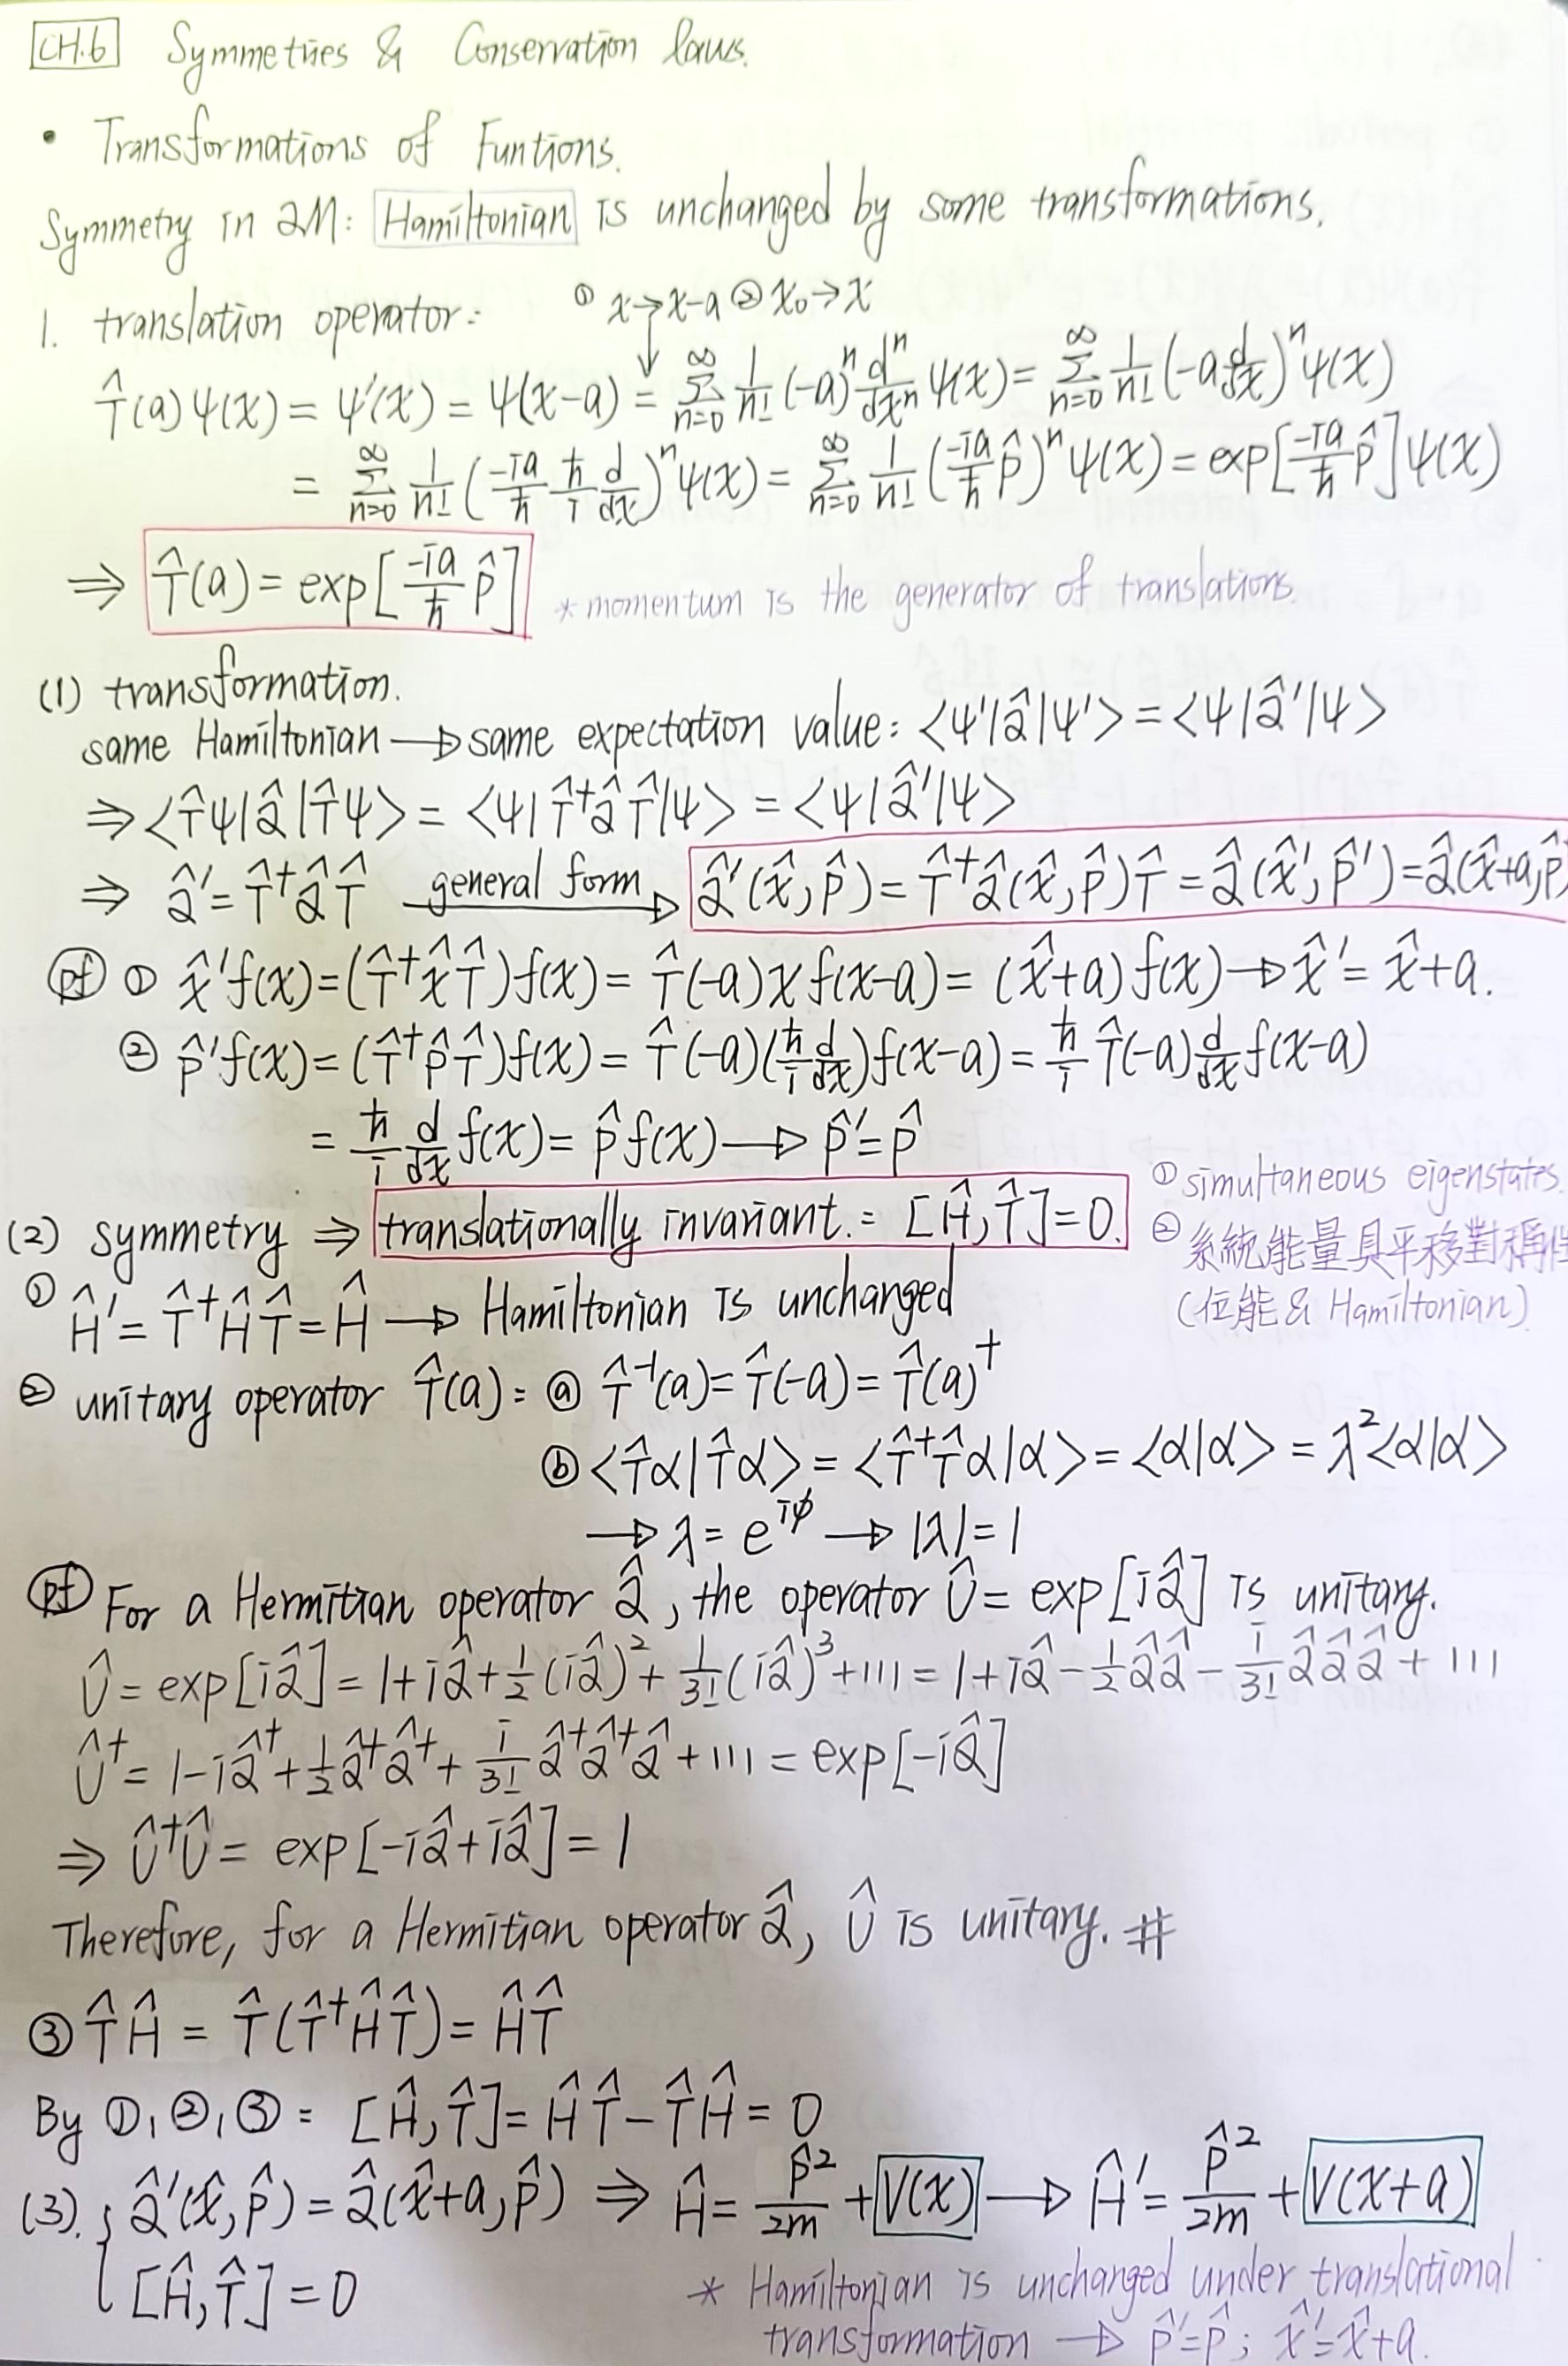 CH.6 Symmetries & Conservation laws.
• Transformations of Funtions.
Symmetry in QM: Hamiltonian is unchanged by some transformations.
① x→x-a ② x₀→x
1. translation operator:
T̂(a)ψ(x) = ψ'(x) = ψ(x-a) = Σ_{n=0}^{∞} 1/n! (-a)ⁿ dⁿ/dxⁿ ψ(x) = Σ_{n=0}^{∞} 1/n! (-a d/dx)ⁿ ψ(x)
= Σ_{n=0}^{∞} 1/n! (-ia/ħ ħ/i d/dx)ⁿ ψ(x) = Σ_{n=0}^{∞} 1/n! (-ia/ħ p̂)ⁿ ψ(x) = exp[-ia/ħ p̂] ψ(x)
⇒ T̂(a) = exp[-ia/ħ p̂] * momentum is the generator of translations.
(1) transformation.
same Hamiltonian → same expectation value: <ψ'|Q̂|ψ'> = <ψ|Q̂'|ψ>
⇒ <T̂ψ|Q̂|T̂ψ> = <ψ|T̂†Q̂T̂|ψ> = <ψ|Q̂'|ψ>
⇒ Q̂' = T̂†Q̂T̂ general form → Q̂'(x̂,p̂) = T̂†Q̂(x̂,p̂)T̂ = Q̂(x̂',p̂') = Q̂(x̂+a,p̂)
pf ① x̂'f(x) = (T̂†x̂T̂)f(x) = T̂(-a)xf(x-a) = (x̂+a)f(x) → x̂' = x̂+a.
② p̂'f(x) = (T̂†p̂T̂)f(x) = T̂(-a)(ħ/i d/dx)f(x-a) = ħ/i T̂(-a) d/dx f(x-a)
= ħ/i d/dx f(x) = p̂f(x) → p̂' = p̂
(2) symmetry ⇒ translationally invariant: [Ĥ,T̂]=0.
① simultaneous eigenstates.
② 系統能量具平移對稱性
(位能 & Hamiltonian)
① Ĥ' = T̂†ĤT̂ = Ĥ → Hamiltonian is unchanged
② unitary operator T̂(a): ⓐ T̂⁻¹(a) = T̂(-a) = T̂(a)†
ⓑ <T̂α|T̂α> = <T̂†T̂α|α> = <α|α> = λ²<α|α>
→ λ = e^{iφ} → |λ| = 1
pf For a Hermitian operator Q̂, the operator Û = exp[iQ̂] is unitary.
Û = exp[iQ̂] = 1+iQ̂+½(iQ̂)²+1/3!(iQ̂)³+... = 1+iQ̂-½Q̂Q̂-i/3!Q̂Q̂Q̂+...
Û† = 1-iQ̂†+½Q̂†Q̂†+i/3!Q̂†Q̂†Q̂+... = exp[-iQ̂]
⇒ Û†Û = exp[-iQ̂+iQ̂] = 1
Therefore, for a Hermitian operator Q̂, Û is unitary. #
③ T̂Ĥ = T̂(T̂†ĤT̂) = ĤT̂
By ①,②,③: [Ĥ,T̂] = ĤT̂-T̂Ĥ = 0
(3). { Q̂'(x̂,p̂) = Q̂(x̂+a,p̂) ⇒ Ĥ = p̂²/2m + V(x) → Ĥ' = p̂²/2m + V(x+a)
[Ĥ,T̂] = 0
* Hamiltonian is unchanged under translational
transformation → p̂'=p̂; x̂'=x̂+a.